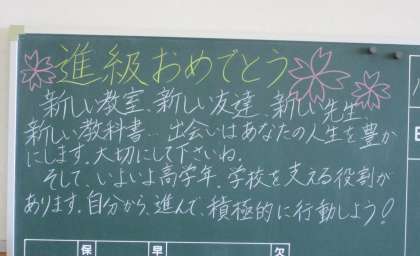 進級おめでとう
新しい教室、新しい友達、新しい先生、
新しい教科書… 出会いはあなたの人生を豊か
にします。大切にして下さいね。
そして、いよいよ高学年。学校を支える役割が
あります。自分から、進んで、積極的に行動しよう！
保 早 欠